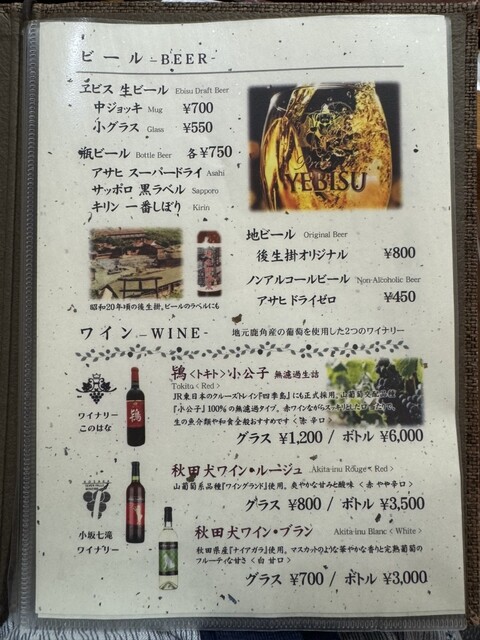 ビール -BEER-
ヱビス 生ビール Ebisu Draft Beer
中ジョッキ Mug ¥700
小グラス Glass ¥550
瓶ビール Bottle Beer 各 ¥750
アサヒ スーパードライ Asahi
サッポロ 黒ラベル Sapporo
キリン 一番しぼり Kirin
YEBISU
地ビール Original Beer
後生掛オリジナル ¥800
ノンアルコールビール Non-Alcoholic Beer
アサヒドライゼロ ¥450
昭和20年頃の後生掛。ビールのラベルにも
ワイン -WINE- 地元鹿角産の葡萄を使用した2つのワイナリー
ワイナリー
このはな
鴇
鴇〈トキト〉小公子 無濾過生詰
Tokito < Red >
JR東日本のクルーズトレイン『四季島』にも正式採用。山葡萄交配品種
『小公子』100%の無濾過タイプ。赤ワインながら
生の魚介類や和食全般おすすめです < 赤 辛口 >
グラス ¥1,200 / ボトル ¥6,000
小坂七滝
ワイナリー
秋田犬ワイン・ルージュ Akita-inu Rouge < Red >
山葡萄系品種『ワイングランド』使用。爽やかな甘みと酸味 < 赤 やや辛口 >
グラス ¥800 / ボトル ¥3,500
秋田犬ワイン・ブラン Akita-inu Blanc < White >
秋田県産『ナイアガラ』使用。マスカットのような華やかな香りと完熟葡萄の
フルーティな甘さ < 白 甘口 >
グラス ¥700 / ボトル ¥3,000